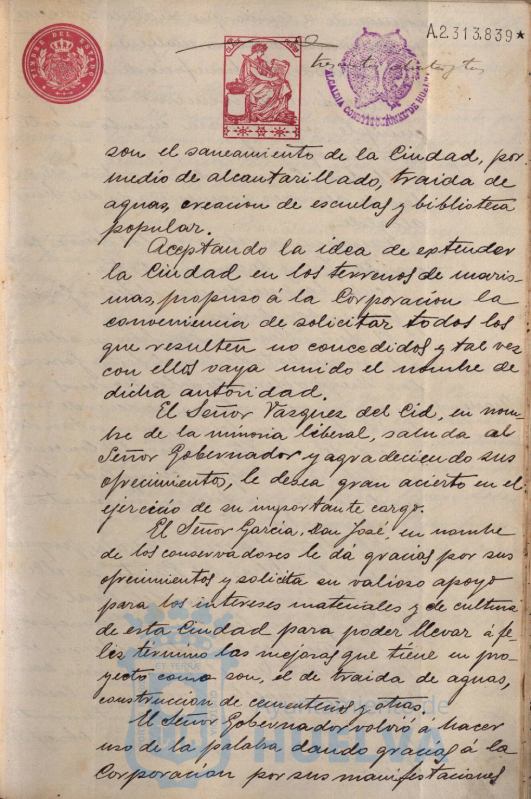 TIMBRE DEL ESTADO
A.2.313.839★
ALCALDIA CONSTITUCIONAL DE HUELVA
son el saneamiento de la Ciudad, por
medio de alcantarillado, traida de
aguas, creacion de escuelas y biblioteca
popular.
Aceptando la idea de extender
la Ciudad en los terrenos de maris-
mas, propuso á la Corporacion la
conveniencia de solicitar todos los
que resulten no concedidos y tal vez
con ellos vaya unido el nombre de
dicha autoridad.
El Señor Vázquez del Cid, en nom-
bre de la minoria liberal, saluda al
Señor Gobernador y agradeciendo sus
ofrecimientos, le desea gran acierto en el
ejercicio de su importante cargo.
El Señor Garcia, Don José, en nombre
de los conservadores le dá gracias por sus
ofrecimientos y solicita su valioso apoyo
para los intereses materiales y de cultura
de esta Ciudad para poder llevar á fe-
liz término las mejoras que tiene en pro-
yecto como son, el de traida de aguas,
construccion de cementerio y otras.
El Señor Gobernador volvió á hacer
uso de la palabra dando gracias á la
Corporacion por sus manifestaciones
HUELVA